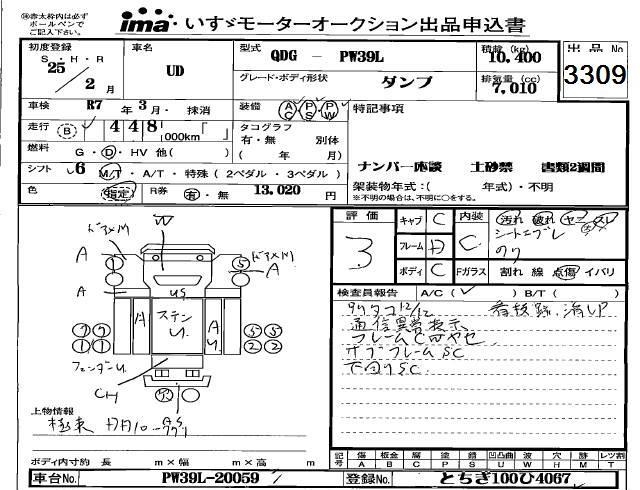 ㊟赤太枠内は必ず
ボールペンで
ご記入下さい。
ima・いすゞモーターオークション出品申込書
初度登録 車名 型式 QDG - PW39L 積載 (kg) 10,400 出品No
S・H・R 25年 2月 UD グレード・ボディ形状 ダンプ 排気量 (cc) 7,010 3309
車検 R7年 3月・抹消 装備 AC・PS・PW 特記事項
走行 B 448,000km「 」 タコグラフ 有・無 別体
燃料 G・D・HV 他( ) ( 年 月)
ナンバー確談 土砂禁 書類2週間
シフト 6 M/T・A/T・特殊(2ペダル・3ペダル)
架装物年式:( 年式)・不明
色 指定 R券 有・無 13,020 円
※不明の場合は、不明に○をする。
評価 3 キャブ C 内装 C 汚れ 破れ ヤニ スレ
フレーム D シートコブレ
ボディ C Fガラス 割れ 線 点傷 イバリ
検査員報告 A/C( ✓ ) B/T( )
12/12 看板跡
通信異常表示
フレームC
サブフレームSC
下回りSC
A A
A U.S
A ステン U. A U.
フェンダーU.
CH
上物情報
極東
ボディ内寸約 長 m×幅 m×高 m
記号 傷 A 板金 B 腐 C 塗 P 凹 U 凹凸曲 S 波 W 穴 H 跡 M レツ割 T
車台No. PW39L-20059 登録No. とちぎ100ひ4067